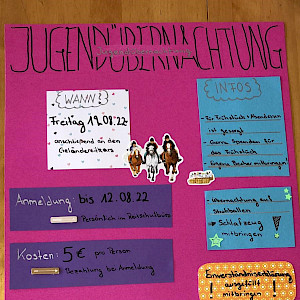 JUGENDÜBERNACHTUNG
WANN?
Freitag 19.08.22
anschließend an den
Geländereitkurs
INFOS
- Für Frühstück + Abendessen
ist gesorgt
- Gerne Spenden für
das Frühstück
- Eigene Becher mitbringen!
Anmeldung bis 12.08.22
Persönlich im Reitschulbüro
- Übernachtung auf
Strohballen
→ Schlafzeug
mitbringen
Kosten: 5€ pro Person
Bezahlung bei Anmeldung
Einverständniserklärung
ausgefüllt
mitbringen